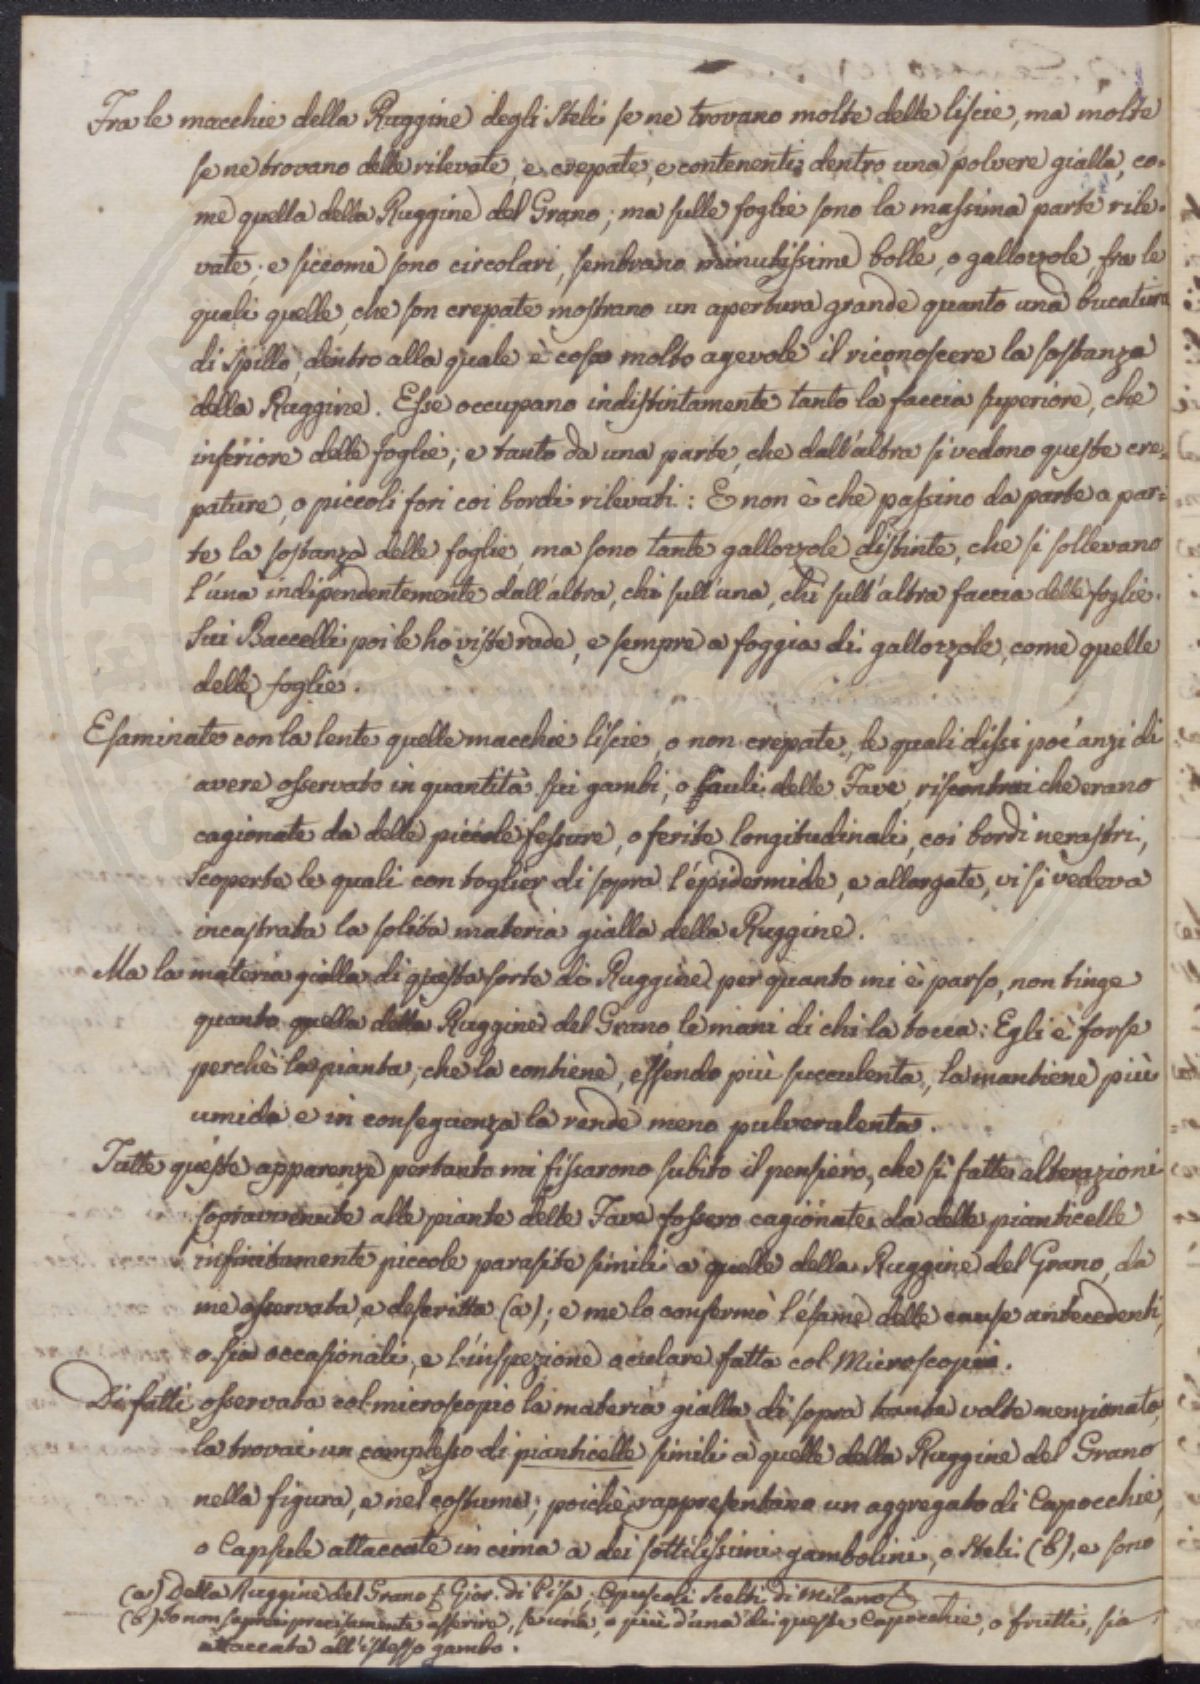 Fra le macchie della Ruggine degli Steli se ne trovano molte delle liscie, ma molte
se ne trovano delle rilevate, e crepate, e contenenti dentro una polvere gialla, co-
me quella della Ruggine del Grano; ma sulle foglie sono la massima parte rile-
vate; e siccome sono circolari, sembrano minutissime bolle, o gallozzole, fra le
quali quelle, che son crepate mostrano un apertura grande quanto una bucatura
di Spillo, dentro alla quale è cosa molto agevole il riconoscere la sostanza
della Ruggine. Esse occupano indistintamente tanto la faccia superiore, che
inferiore delle foglie; e tanto da una parte, che dall'altra si vedono queste cre-
pature, o piccoli fori coi bordi rilevati: E non è che passino da parte a par-
te la sostanza delle foglie, ma sono tante gallozzole distinte, che si sollevano
l'una indipendentemente dall'altra, chi sull'una, chi sull'altra faccia delle foglie.
Sui Baccelli poi le ho viste rade, e sempre a foggia di gallozzole, come quelle
delle foglie.
Esaminate con la lente quelle macchie liscie, o non crepate, le quali dissi poc'anzi di
avere osservato in quantità sui gambi, o fauli delle Fave, riscontrai che erano
cagionate da delle piccole fessure, o ferite longitudinali, coi bordi nerastri,
scoperte le quali con toglier di sopra l'epidermide, e allargate, vi si vedeva
incastrata la solita materia gialla della Ruggine.
Ma la materia gialla di questa sorte di Ruggine per quanto mi è parso, non tinge
quanto quella della Ruggine del Grano le mani di chi la tocca: Egli è forse
perchè la pianta, che la contiene, essendo più succulenta, la mantiene più
umida e in conseguenza la rende meno pulverulenta.
Tutte queste apparenze pertanto mi fissarono subito il pensiero, che sì fatte alterazioni
sopravvenute alle piante delle Fave fossero cagionate da delle pianticelle
infinitamente piccole parasite simili a quelle della Ruggine del Grano, da
me osservata, e descritta (a); e me lo confermò l'esame delle cause antecedenti,
o sia occasionali, e l'inspezione oculare fatta col Microscopio.
Di fatti osservata col microscopio la materia gialla di sopra tante volte menzionata,
la trovai un complesso di pianticelle simili a quelle della Ruggine del Grano
nella figura, e nel costume; poichè rappresentano un aggregato di Capocchie,
o Capsule attaccate in cima a dei sottilissimi gambolini, o Steli (b), e sono
(a) Della Ruggine del Grano Gior. di Pisa, Opuscoli Scelti di Milano
(b) Io non saprei precisamente asserire, se una, o più d'una di queste Capocchie, o frutti, sia
attaccata all'istesso gambo.